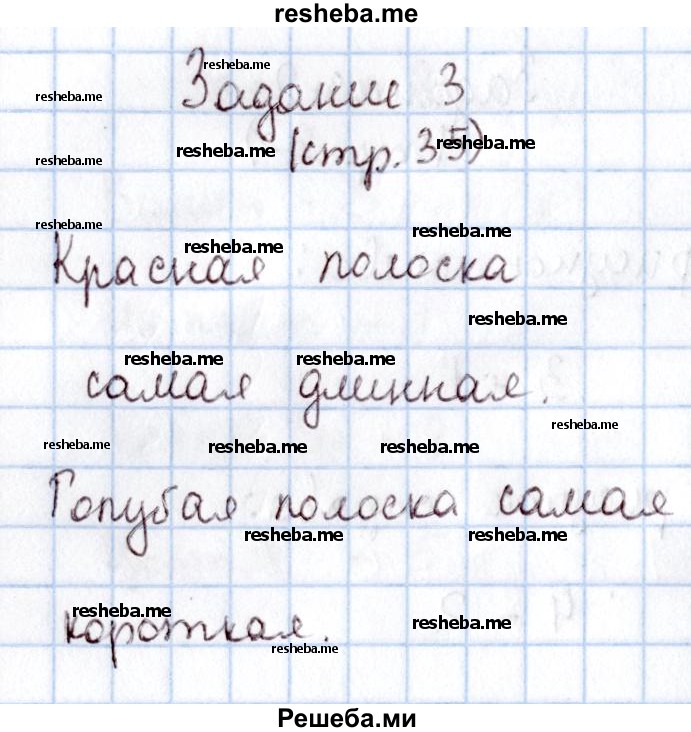 resheba.me
resheba.me
Задание 3
resheba.me
resheba.me resheba.me (стр. 35) resheba.me
resheba.me resheba.me resheba.me
Красная полоска
resheba.me
resheba.me resheba.me
самая длинная.
resheba.me
resheba.me resheba.me resheba.me
Голубая полоска самая
resheba.me resheba.me
resheba.me resheba.me
короткая.
resheba.me
Решеба.ми